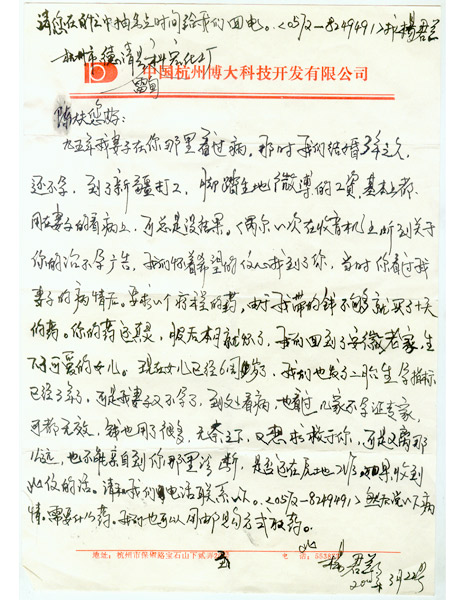 请您在百忙中抽出点时间给我们回电。<0572-8249491>找杨君兰
杭州市德清县科名化厂
中国杭州博大科技开发有限公司
雷甸
陈大夫您好:
九五年我妻子在你那里看过病。那时我们结婚3年之久,
还不孕,到了新疆打工,脚踏生地微博的工资,基本上都
用在妻子的看病上,可总是没结果。偶尔一次在收音机上听到关于
你的治不孕广告,我们怀着希望的心找到了你,当时你看过我
妻子的病情后。要求一个疗程的药,由于我带的钱不够就买了十天
的药。你的药还真灵,服后本月就好了,我们回到了安徽老家生
下了可爱的女儿。现在女儿已经6周岁了,我们也发了二胎生孕指标
已经3年了,可是我妻子又不孕了,到处看病,也看过几家不孕证专家,
可都无效,钱也用了很多,无奈之下,又想求救于你,可是又离那
么远,也不能亲自到你那里诊断,是否还在 如果收到
此信的话。请和我们电话联系一下。<0572-8249491>然后说一下病
情。需要什么药。我们也可以用邮购方式取药。
地址:杭州市保俶路宝石山下贰弄
电话:
杨君兰
3月22号